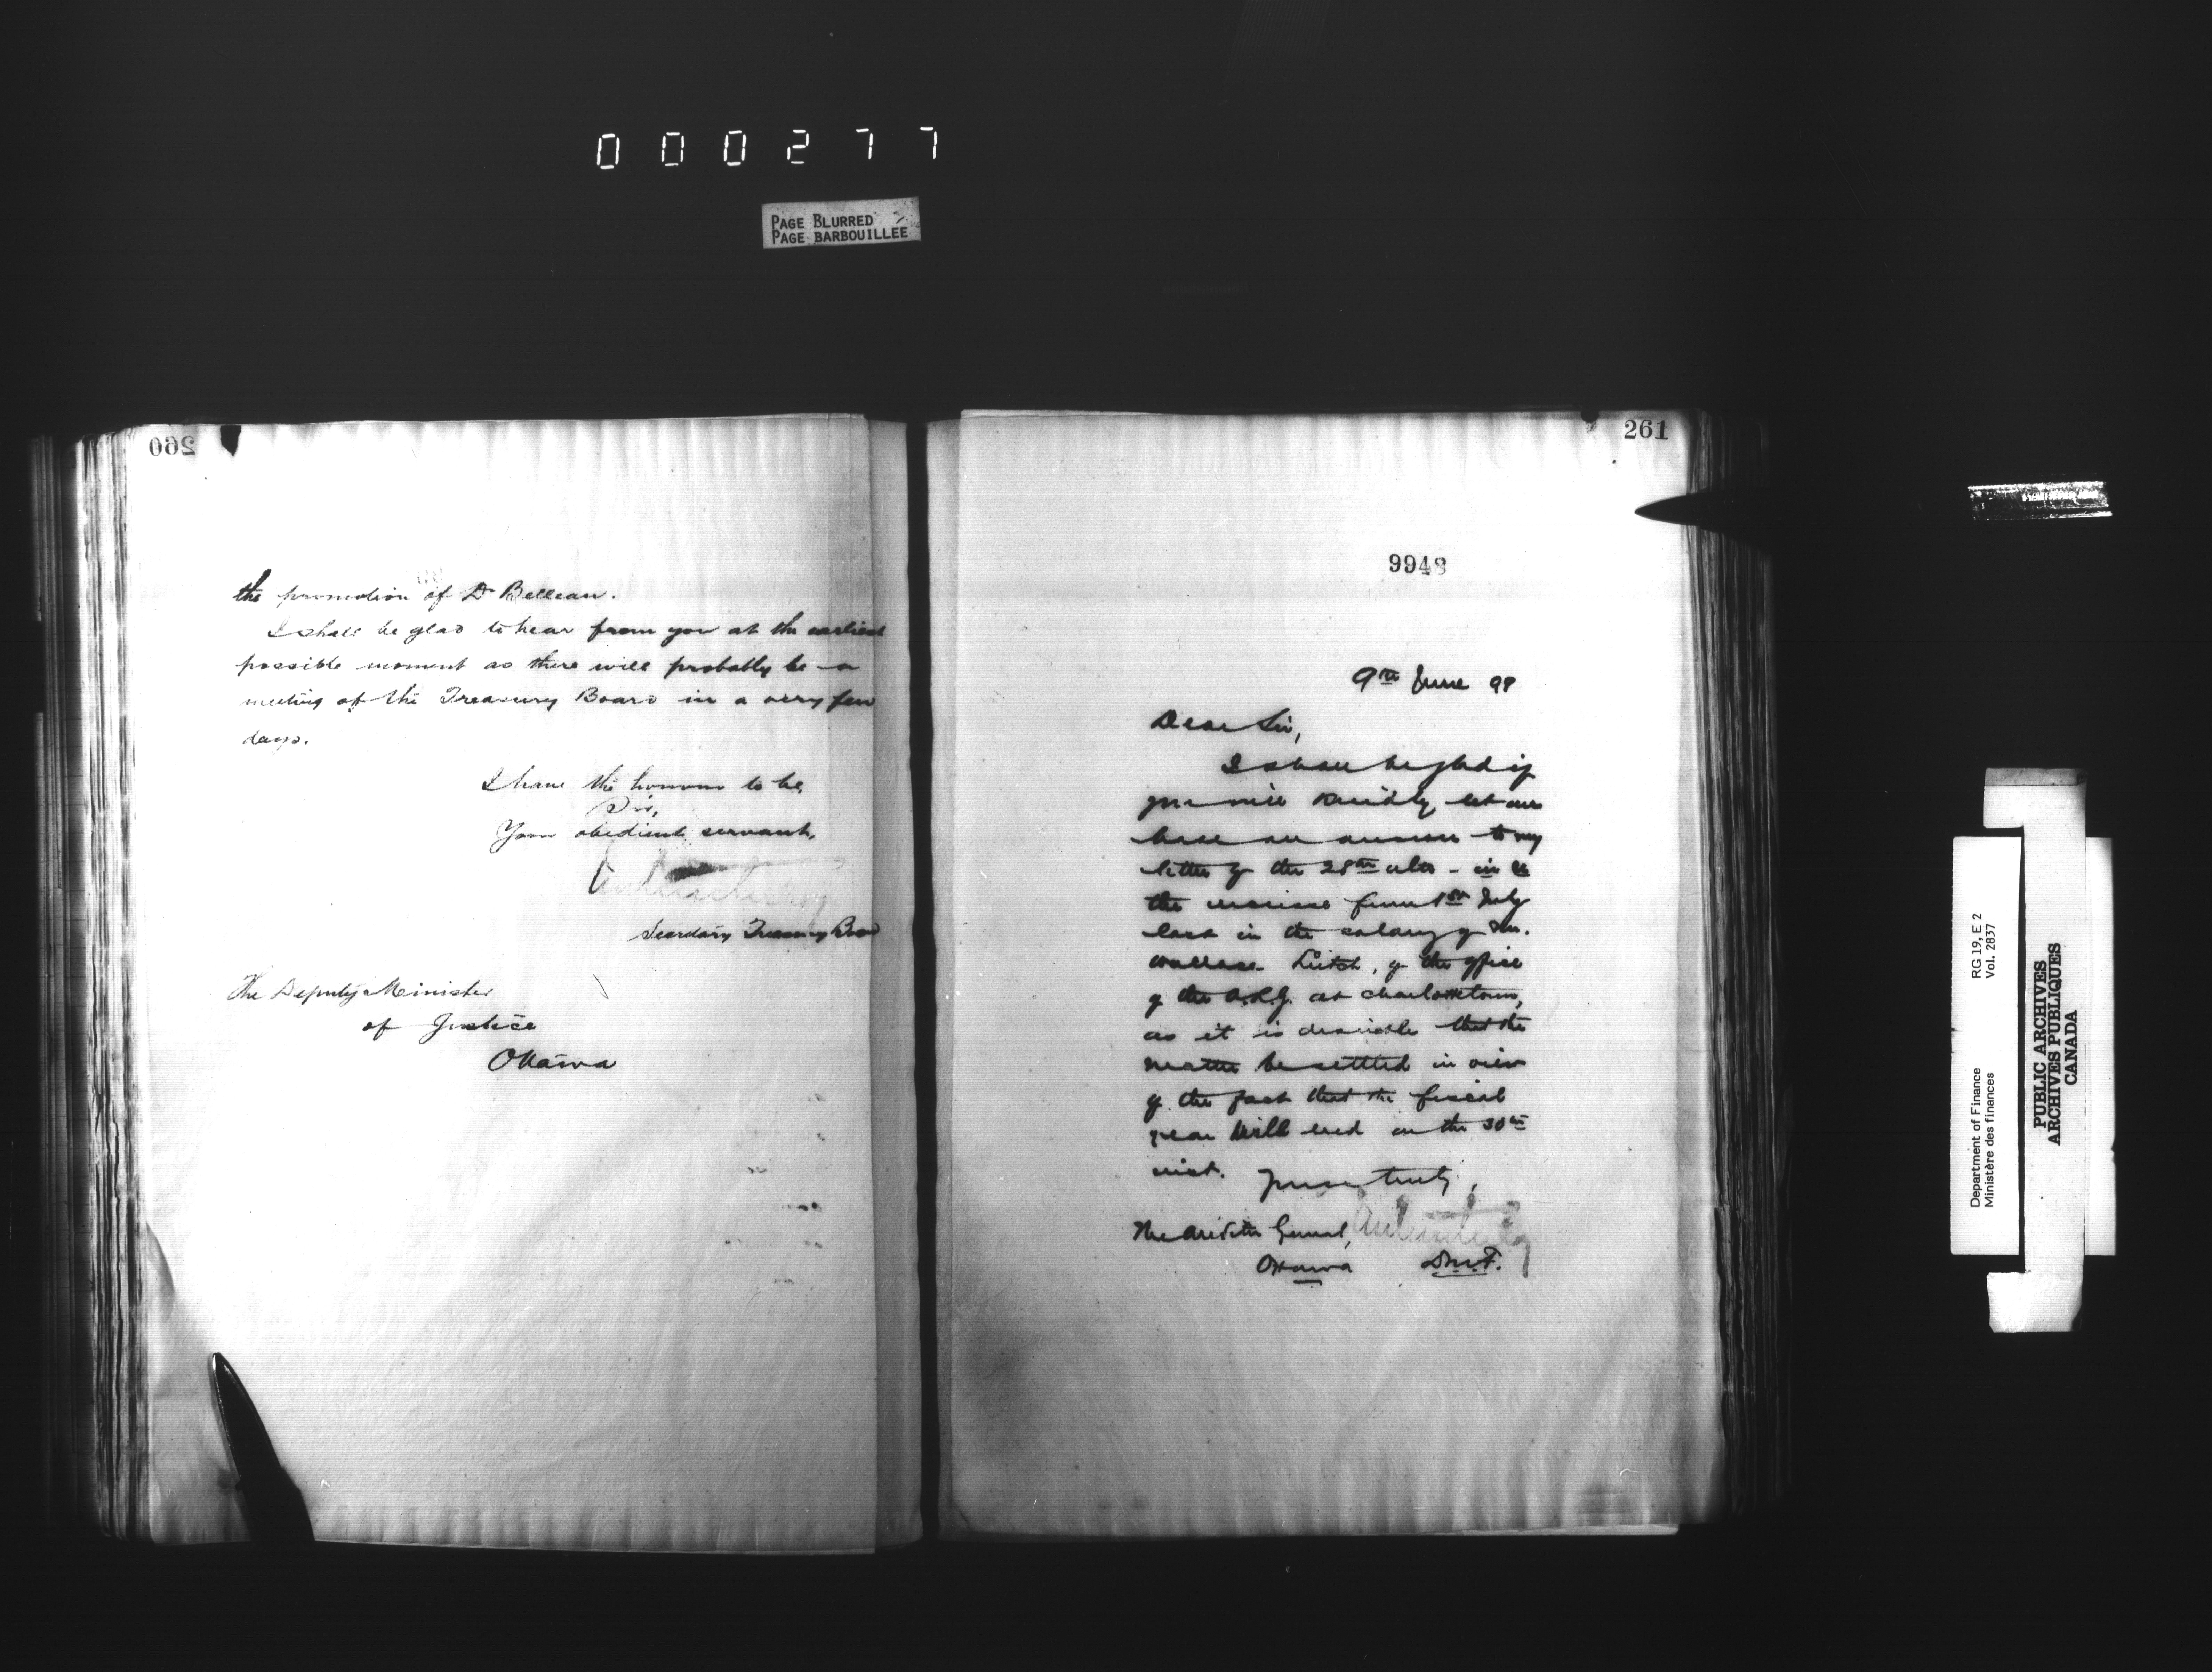 000277
PAGE BLURRED
PAGE BARBOUILLEE
260
the promotion of Dr Belleau.
I shall be glad to hear from you at the earliest
possible moment as there will probably be a
meeting of the Treasury Board in a very few
days.
I have the honour to be,
Sir,
Your obedient servant,
Secretary Treasury Board
The Deputy Minister
of Justice
Ottawa
261
9948
9th June 98
Dear Sir,
I shall be glad if
you will kindly let me
have an answer to my
letter of the 28th ulto - in re
the increase from 1st July
last in the salary of Mr.
Wallace Leitch, of the office
of the A.R.G. at Charlottetown,
as it is desirable that the
matter be settled in view
of the fact that the fiscal
year will end on the 30th
inst.
Yours truly,
The Auditor General,
Ottawa
D.M.F.
Department of Finance
Ministère des finances
RG 19, E 2
Vol. 2837
PUBLIC ARCHIVES
ARCHIVES PUBLIQUES
CANADA